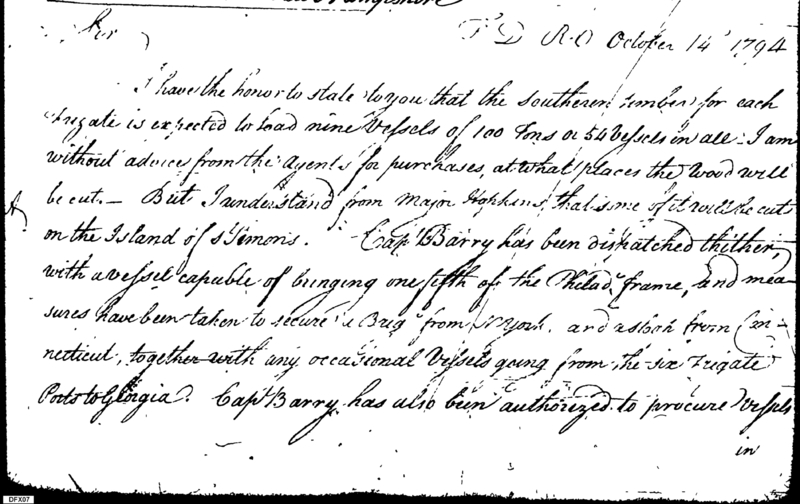 Sir
T D R.O October 14 1794
I have the honor to state to you that the southeren timber for each
Frigate is expected to load nine Vessels of 100 Tons or 54 Vessels in all - I am
without advice from the agents for purchases, at what places the wood will
be cut.— But I understand from Major Hopkins, that some of it will be cut
on the Island of St Simon's. Capt Barry has been dispatched thither,
with a vessel capable of bringing one fifth of the Philada frame, and mea-
sures have been taken to secure a Brig from NYork, and a sloop from Con-
necticut, together with any occasional Vessels going from the six Frigate
Ports to Georgia. Capt Barry has also been authorized to procure Vessels
in
DFX07